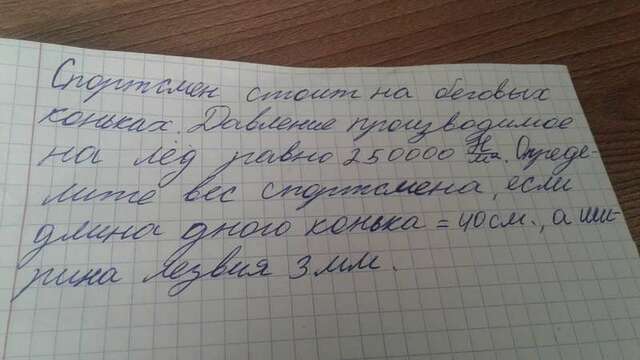 Спортсмен стоит на беговых
коньках. Давление производимое
на лёд равно 250000 Н/м². Опреде-
лите вес спортсмена, если
длина дного конька = 40см., а ши-
рина лезвия 3мм.